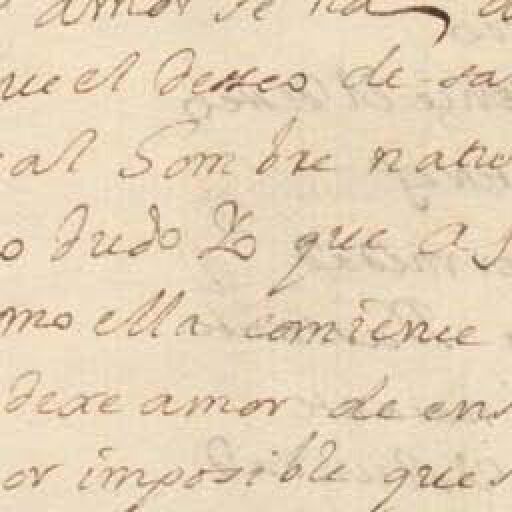 amor se ha
que el desseo de sa
al Sombre natu
o dudo Yo que as
omo ella comience
dexe amor de ens
or imposible ques